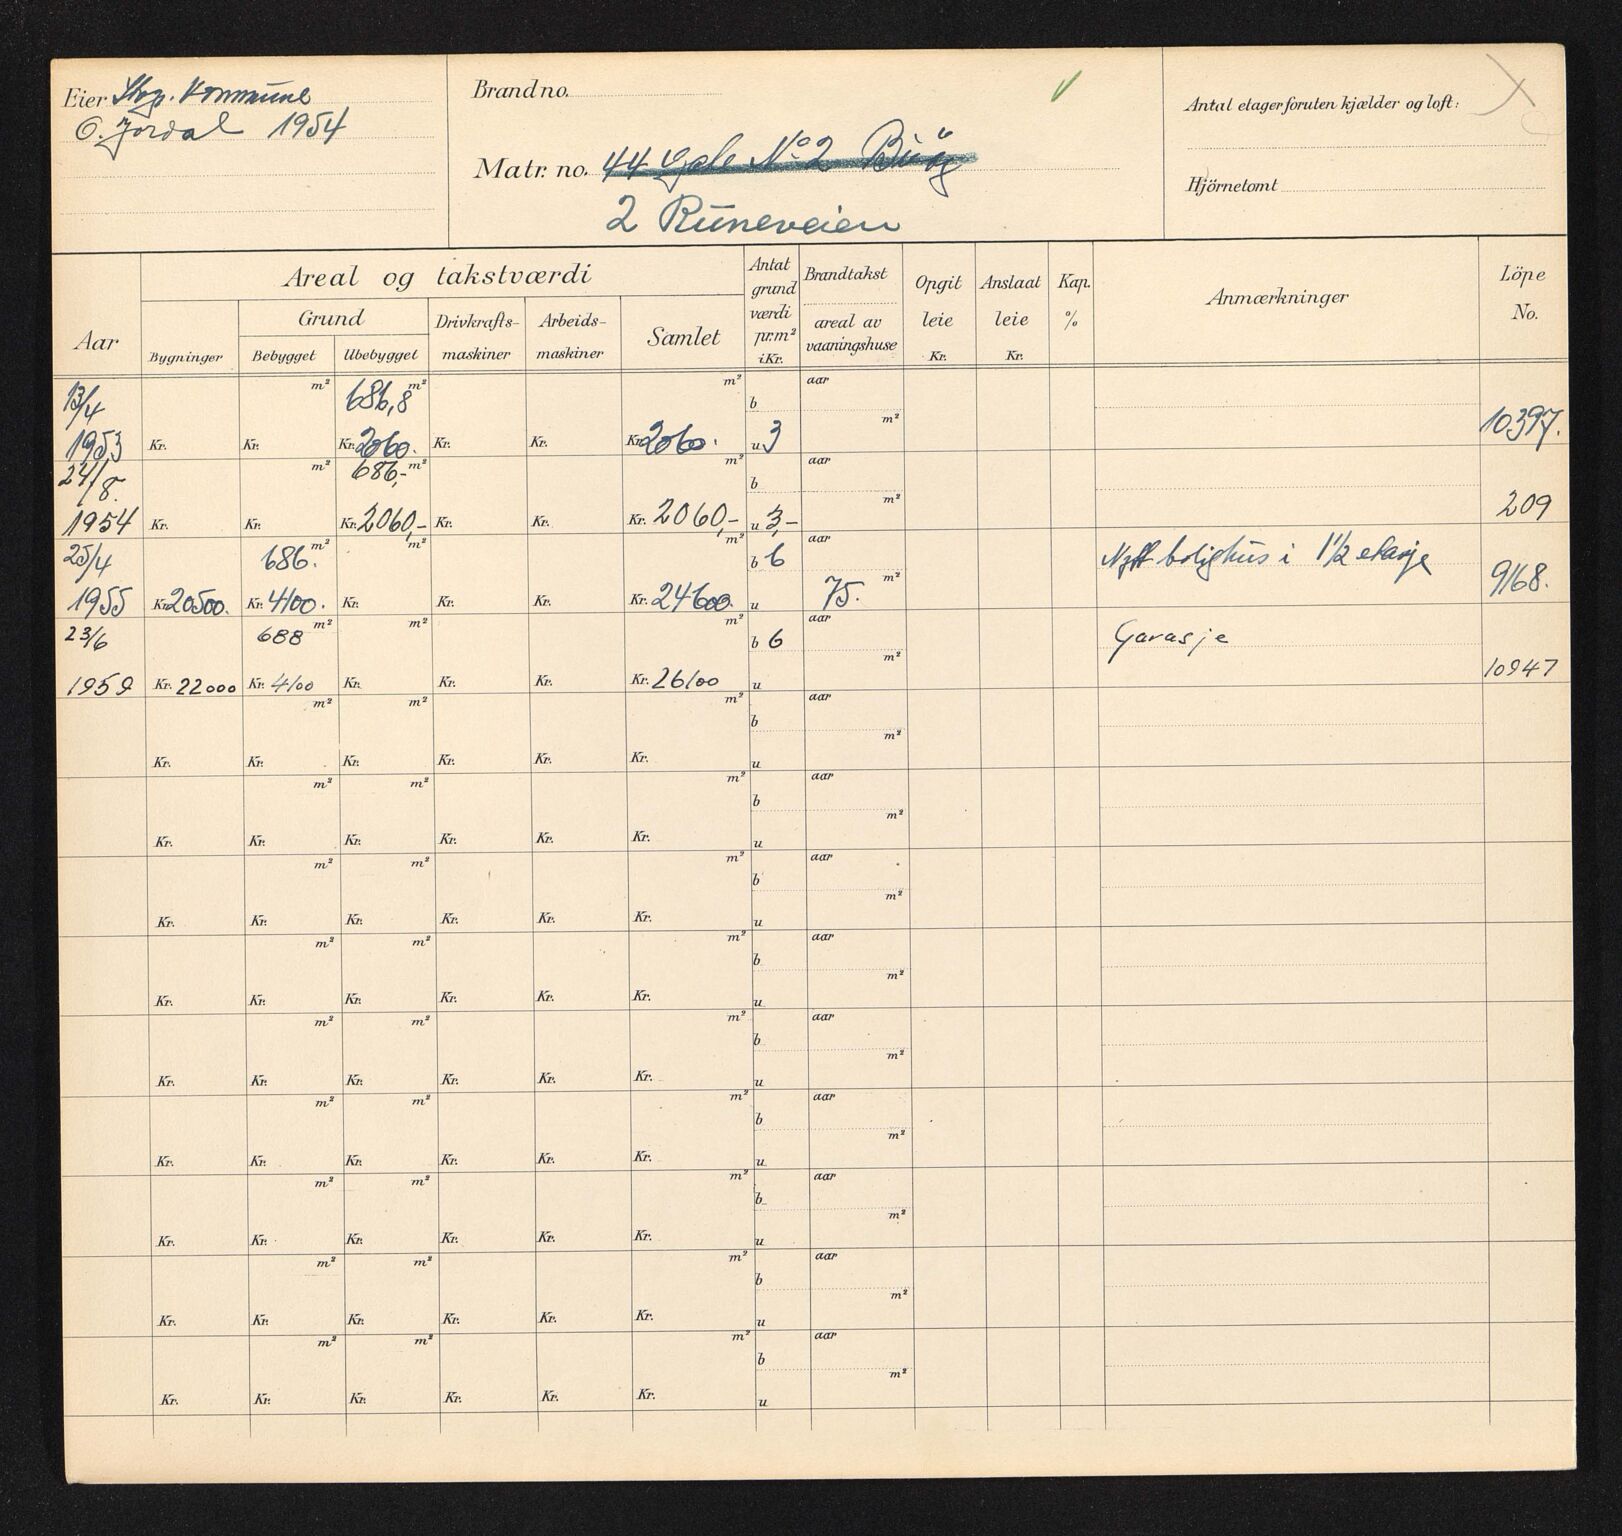 Eier Stvg. Kommune
O. Jordal 1954
Brand no.
Matr. no. 44 Gate No 2 Buøy
2 Runeveien
Antal etager foruten kjælder og loft:
Hjörnetomt
Aar
Areal og takstværdi
Bygninger
Grund
Bebygget Ubebygget
Drivkrafts-
maskiner
Arbeids-
maskiner
Samlet
Antat
grund
værdi
pr.m²
i Kr.
Brandtakst
areal av
vaaningshuse
Opgit
leie
Kr.
Anslaat
leie
Kr.
Kap.
%
Anmærkninger
Löpe
No.
13/4 m² 686,8 m² m² b aar
1953 Kr. Kr. Kr. 2060. Kr. Kr. Kr. 2060. u 3 m² 10397.
24/8. m² 686,- m² m² b aar
1954 Kr. Kr. Kr. 2060,- Kr. Kr. Kr. 2060,- u 3,- m² 209
25/4 686. m² m² m² b 6 aar Nytt bolighus i 1 1/2 etasje
1955 Kr. 20500. Kr. 4100. Kr. Kr. Kr. Kr. 24600. u 75. m² 9168.
23/6 688 m² m² m² b 6 aar Garasje
1959 Kr. 22000 Kr. 4100 Kr. Kr. Kr. Kr. 26100 u m² 10947
m² m² m² b aar
Kr. Kr. Kr. Kr. Kr. Kr. u m²
m² m² m² b aar
Kr. Kr. Kr. Kr. Kr. Kr. u m²
m² m² m² b aar
Kr. Kr. Kr. Kr. Kr. Kr. u m²
m² m² m² b aar
Kr. Kr. Kr. Kr. Kr. Kr. u m²
m² m² m² b aar
Kr. Kr. Kr. Kr. Kr. Kr. u m²
m² m² m² b aar
Kr. Kr. Kr. Kr. Kr. Kr. u m²
m² m² m² b aar
Kr. Kr. Kr. Kr. Kr. Kr. u m²
m² m² m² b aar
Kr. Kr. Kr. Kr. Kr. Kr. u m²
m² m² m² b aar
Kr. Kr. Kr. Kr. Kr. Kr. u m²